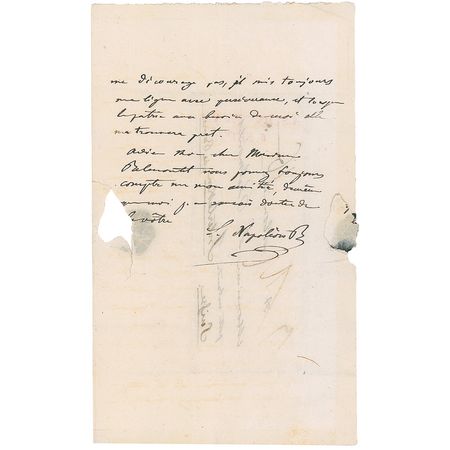 me décourage pas, je suis toujours
ma ligne avec persévérance, et lorsque
la patrie aura besoin de moi elle
me trouvera prêt.
Adieu mon cher Monsieur
Belmontet vous pouvez toujours
compter sur mon amitié,
que moi je saurais douter de
la vôtre
L. Napoléon B